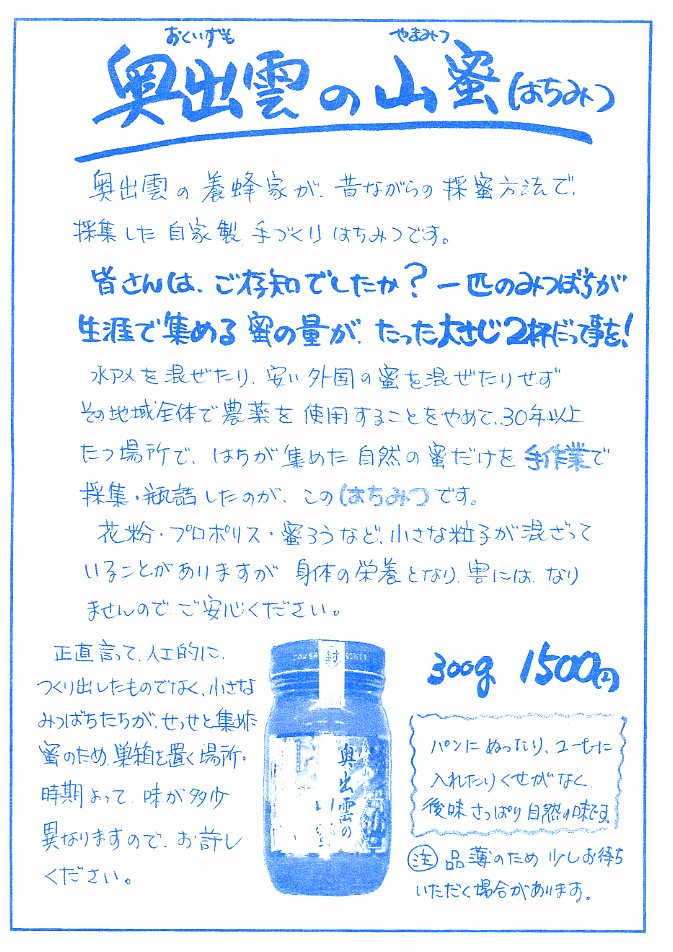 おくいずも やまみつ
奥出雲の山蜜(はちみつ)
奥出雲の養蜂家が、昔ながらの採蜜方法で、
採集した自家製手づくりはちみつです。
皆さんは、ご存知でしたか?一匹のみつばちが
生涯で集める蜜の量が、たった大さじ2杯だって事を!
水アメを混ぜたり、安い外国の蜜を混ぜたりせず
その地域全体で農薬を使用することをやめて、30年以上
たつ場所で、はちが集めた自然の蜜だけを手作業で
採集・瓶詰したのが、このはちみつです。
花粉・プロポリス・蜜ろうなど、小さな粒子が混ざって
いることがありますが 身体の栄養となり、害には、なり
ませんので、ご安心ください。
正直言って、人工的に、
つくり出したものでなく、小さな
みつばちたちが、せっせと集めた
蜜のため、巣箱を置く場所・
時期よって、味が多少
異なりますので、お許し
ください。
封
奥出雲の
300g 1500円
パンにぬったり、コーヒーに
入れたりくせがなく
後味さっぱり自然の味です。
注 品薄のため少しお待ち
いただく場合があります。